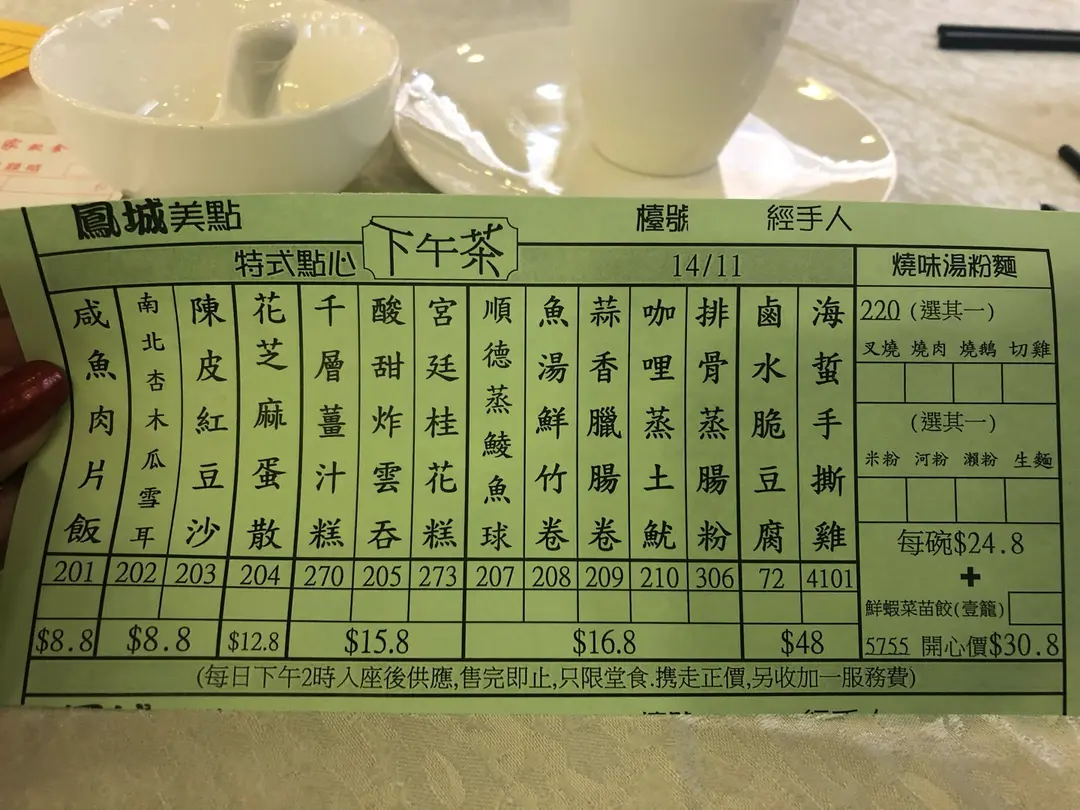 鳳城美點
檯號
經手人
特式點心
下午茶
14/11
燒味湯粉麵
咸魚肉片飯
南北杏木瓜雪耳
陳皮紅豆沙
花芝麻蛋散
千層薑汁糕
酸甜炸雲吞
宮廷桂花糕
順德蒸鯪魚球
魚湯鮮竹卷
蒜香臘腸卷
咖哩蒸土魷
排骨蒸腸粉
鹵水脆豆腐
海蜇手撕雞
201 202 203 204 270 205 273 207 208 209 210 306 72 4101
$8.8 $8.8 $12.8 $15.8 $16.8 $48
220 (選其一)
叉燒 燒肉 燒鵝 切雞
(選其一)
米粉 河粉 瀨粉 生麵
每碗$24.8
+
鮮蝦菜苗餃(壹籠)
5755 開心價$30.8
(每日下午2時入座後供應,售完即止,只限堂食.携走正價,另收加一服務費)